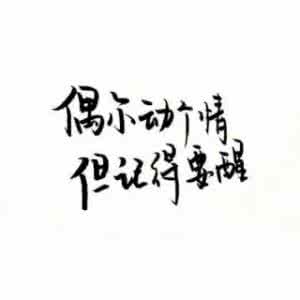 偶尔动个情
但记得要醒